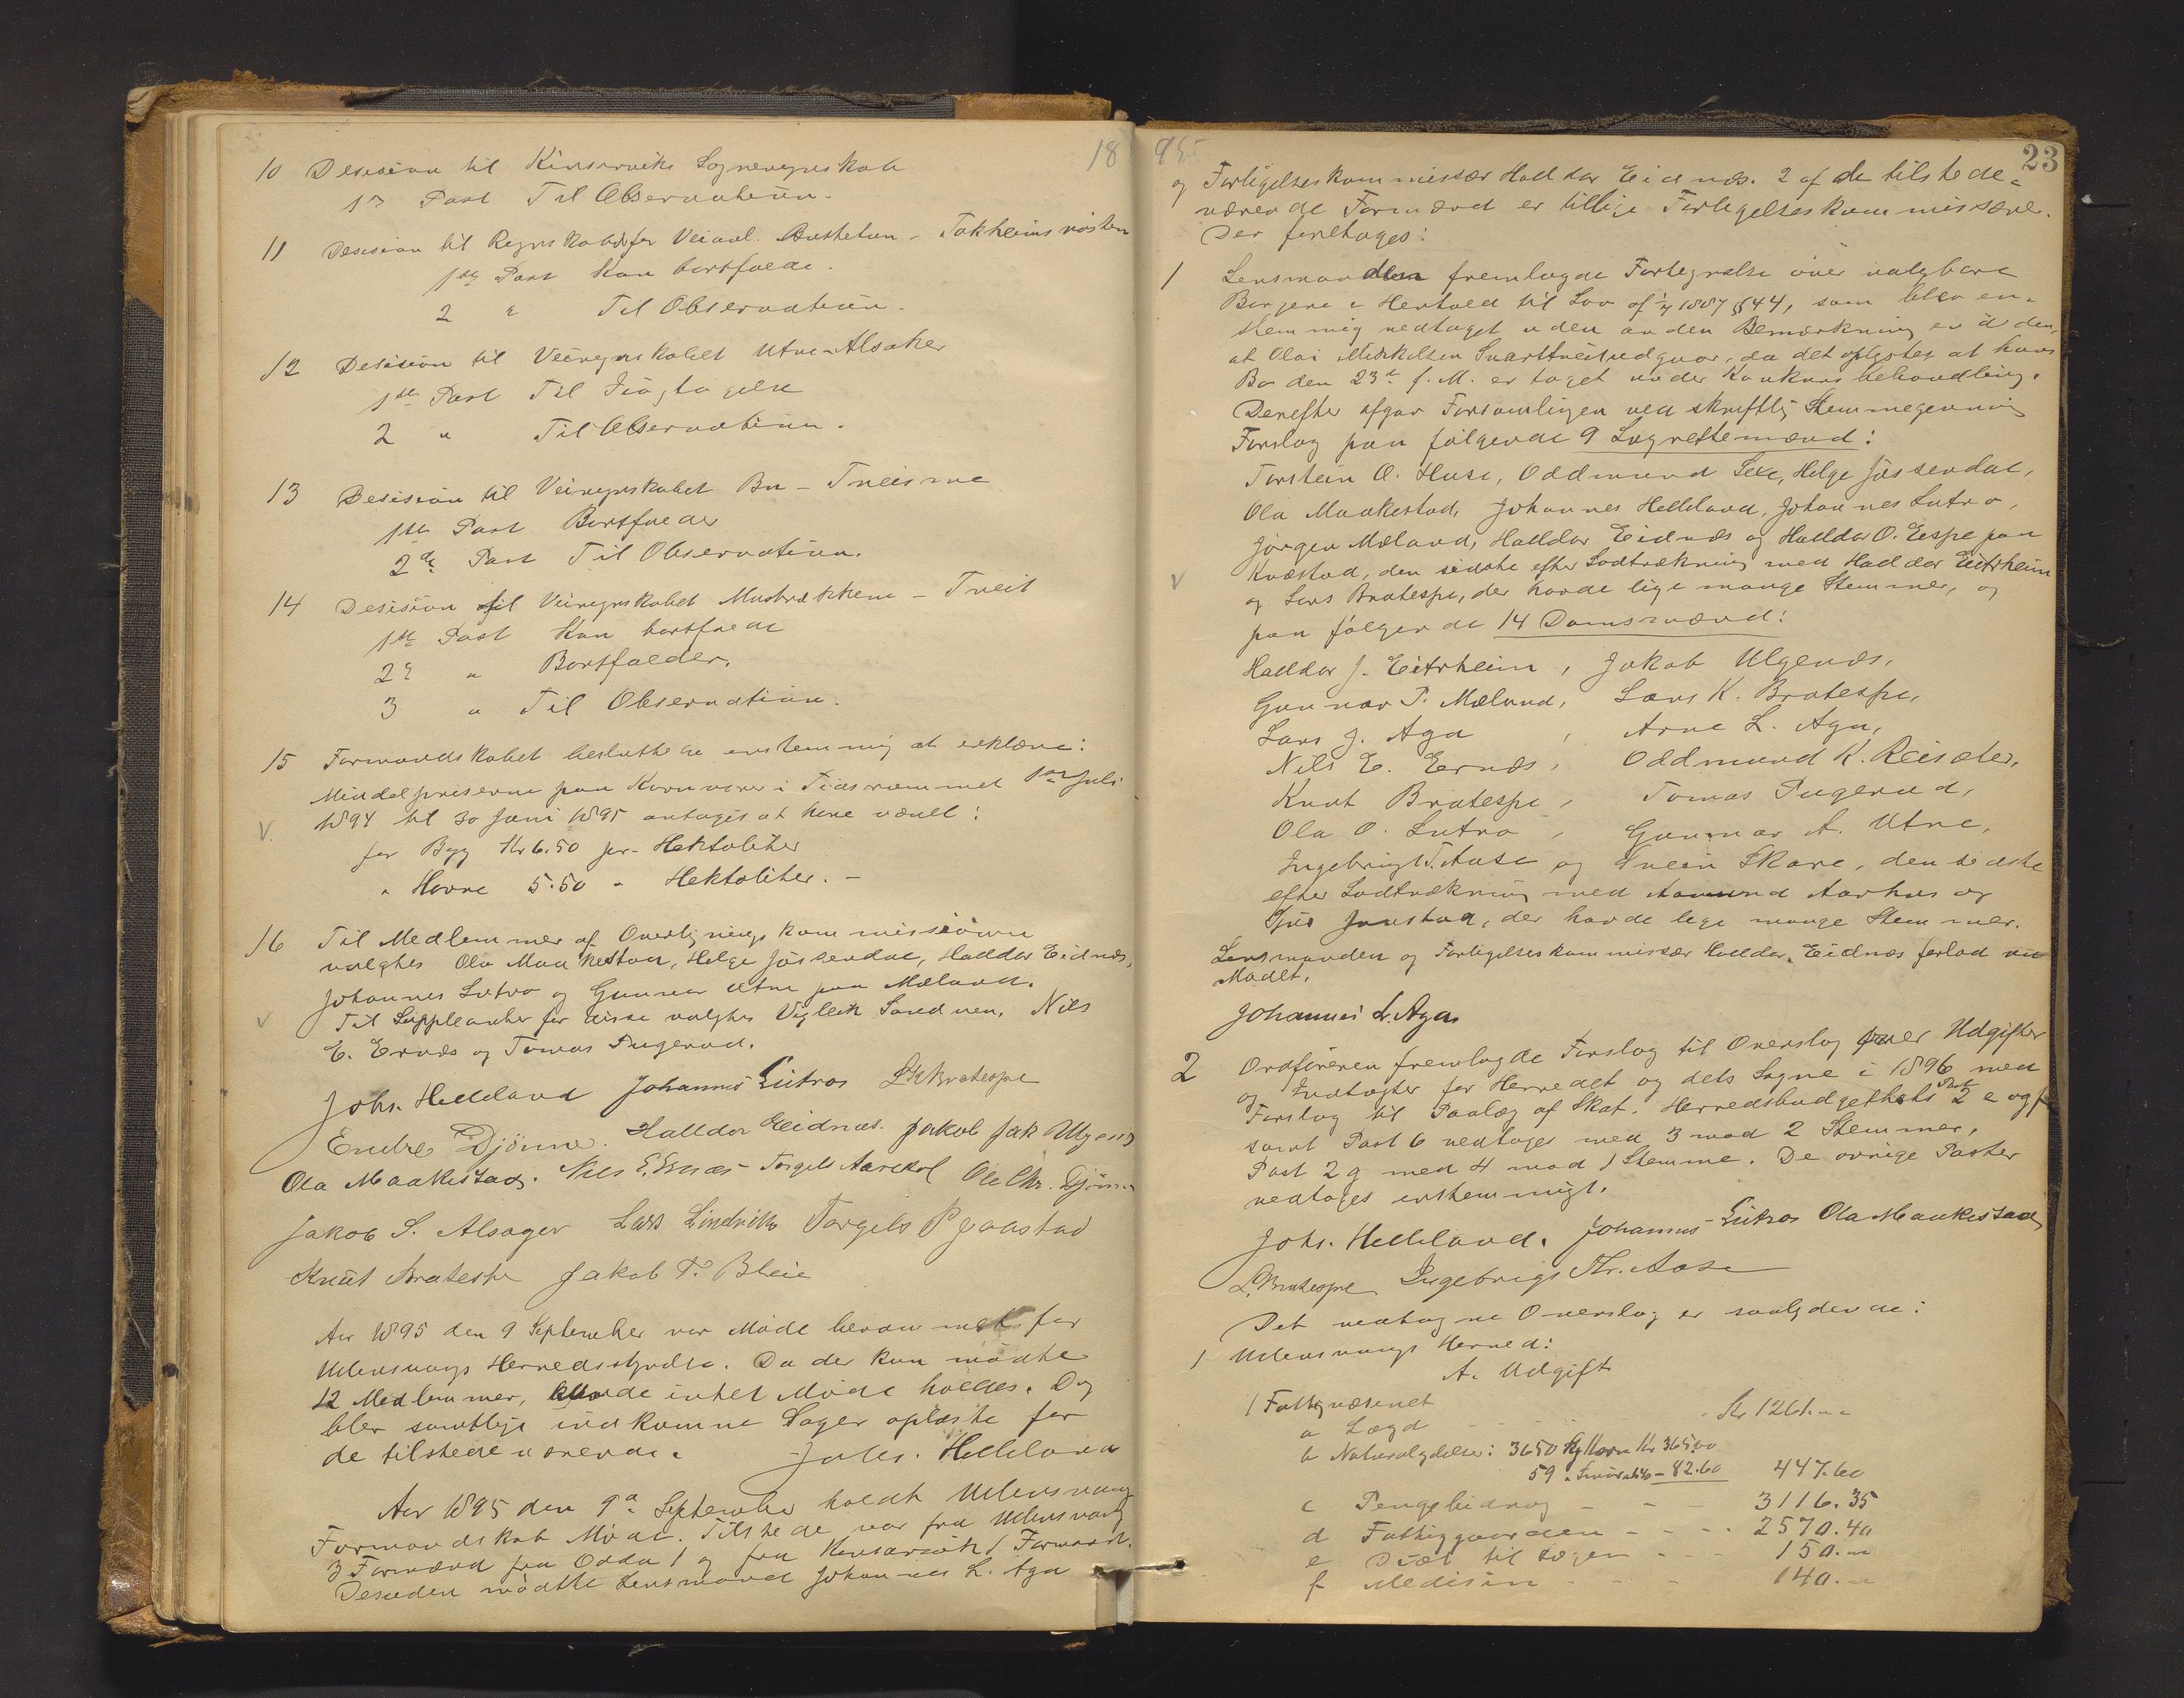 18
10 Desision til Kinserviks Sogneregnskab
1ste Post Til Observation.
11 Desision til Regnskabet for Veianl. Austetun - Tokheimsnøsten
1ste Post Kan bortfalde.
2 " Til Observation.
12 Desision til Veiregnskabet Utne-Alsaker
1ste Post Til Iagtagelse
2 " Til Observation.
13 Desision til Veiregnskabet Bu - Tveisme
1ste Post Bortfalder
2de Post Til Observation.
14 Desision til Veiregnskabet Mustrækkene - Tveit
1ste Post Kan bortfalde
2 " Bortfalder.
3 " Til Observation.
15 Formandskabet besluttede enstemmig at erklære:
Middelpriserne paa Kornvarer i Tidsrummet 1ste Juli
1894 til 30 Juni 1895 antages at have været:
V.
for Byg Kr 6.50 pr. Hektoliter
" Havre 5.50 " Hektoliter. -
16 Til Medlemmer af Overligningskommissionen
valgtes Ola Maakestad, Helge Jøssendal, Halldor Eidnæs,
Johannes Lutro og Gunnar Utne paa Mæland.
Til Suppleanter for disse valgtes Vigleik Sandven, Nils
V
E. Ernæs og Tomas Pugerud.
Johs. Helleland Johannes Lutro L K Bratespe
Endre Djønne. Halldor Eidnæs. Jakob Jak Ulgenæs
Ola Maakestad. Nils E. Ernæs - Torgels Aarekol Ole Chr. Djønne
Jakob S. Alsager Lars Lindvik Torgels P Jaastad
Knut Bratespe Jakob T. Bleie
Aar 1895 den 9 September var Møde berammet for
Ullensvangs Herredsstyrelse. Da der kun mødte
12 Medlemmer, kunde intet Møde holdes. Dog
blev samtlige indkomne Sager oplæste for
de tilstedeværende.
Johs. Helleland
Aar 1895 den 9de September holdt Ullensvang
Formandskab Møde. Tilstede var fra Ullensvang
3 Formænd fra Odda 1 og fra Kinsarvik 1 Formand.
Desuden mødte Lensmand Johannes L. Aga
95
23
og Forligelseskommissær Halldor Eidnæs. 2 af de tilstede-
værende Formænd er tillige Forligelseskommissære.
Der foretages:
1 Lensmanden fremlagde Fortegnelse over valgbare
Borgere i Henhold til Lov af 1/7 1887 § 44, som blev en-
stemmig vedtaget uden anden Bemærkning end den,
at Olai Mikkelsen Svartveit udgaar, da det oplystes at hans
Bo den 23de f. M. er taget under Konkursbehandling.
Derefter afgav Forsamlingen ved skriftlig Stemmegivning
Forslag paa følgende 9 Lagrettemænd:
Torstein O. Huse, Oddmund Sexe, Helge Jøssendal,
Ola Maakestad, Johannes Helleland, Johannes Lutro,
Jørgen Mæland, Halldor Eidnæs og Halldor O. Espe paa
Kvæstad, den sidste efter Lodtrækning med Halldor Eitrheim
V
og Lars Bratespe, der havde lige mange Stemmer, og
paa følgende 14 Domsmænd:
Halldor J. Eitrheim, Jakob Ulgenæs,
Gunnar P. Mæland, Lars K. Bratespe,
Lars J. Aga, Arne L. Aga,
Nils E. Ernæs, Oddmund K. Reisæter,
Knut Bratespe, Tomas Pugerud,
Ola O. Lutro, Gunnar A. Utne,
Ingebrigt T. Aase og Svein Skare, den sidste
efter Lodtrækning med Aamund Aarhus og
Sjur Jaastad, der havde lige mange Stemmer.
Lensmanden og Forligelseskommissær Halldor Eidnæs forlod nu
Mødet.
Johannes L. Aga
2 Ordføreren fremlagde Forslag til Overslag over Udgifter
og Indtægter for Herredet og dets Sogne i 1896 med
Forslag til Paalæg af Skat. Herredsbudgettets Post 2 e og f
samt Post 6 vedtages med 3 mod 2 Stemmer,
Post 2 g med 4 mod 1 Stemme. De øvrige Poster
vedtages enstemmigt.
Johs. Helleland. Johannes Lutro Ola Maakestad
L. Bratespe Ingebrigt Th. Aase
Det vedtagne Overslag er saalydende:
1 Ullensvangs Herred:
A. Udgift
1 Fattigvæsenet
a Lægd - - - Kr 1261.00
b Naturalydelser: 3650 Kg Korn Kr 365.00
59 " Smør à 1.40 - 82.60 447.60
c Pengebidrag - - - 3116.35
d Fattiggaarden - - - 2570.40
e Diæt til Lægen - - - 150.00
f Medisin - - - 140.00